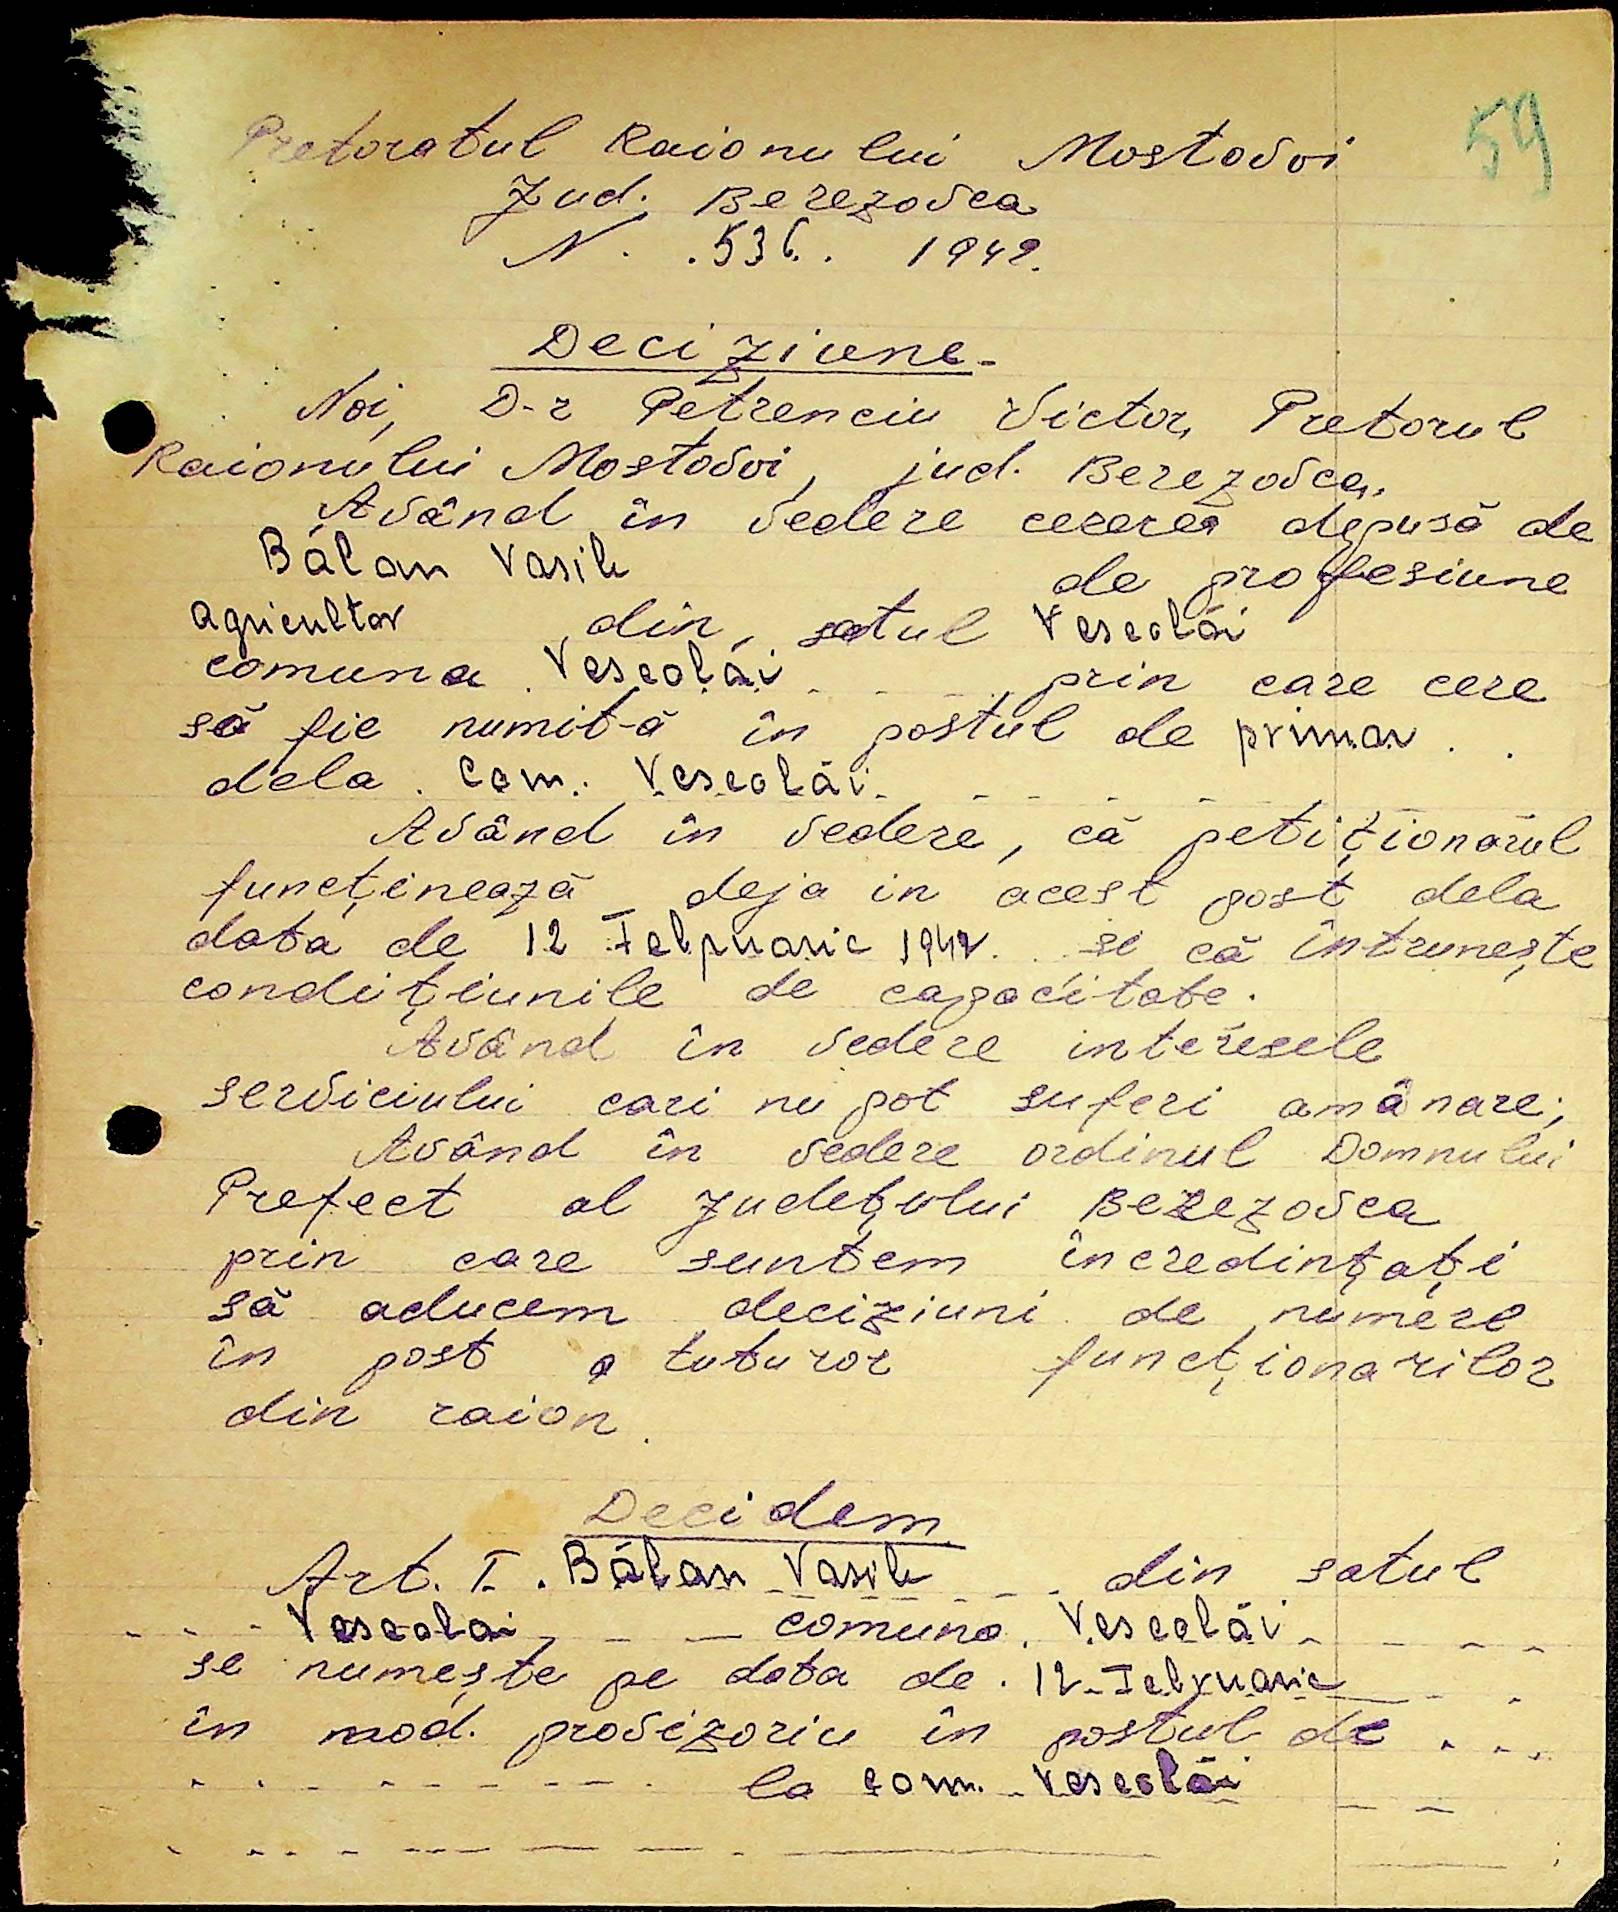 59
Pretoratul Raionului Mostovoi
Jud. Berezovca
N. . 536. . 1942.
Deciziune-
Noi, D-r Petrenciu Victor, Pretorul
Raionului Mostovoi, jud. Berezovca,
Având în vedere cererea depusă de
Bălan Vasile de profesiune
agricultor din satul Vescolăi
comuna Vescolăi prin care cere
să fie numit-ă în postul de primar . .
dela com. Vescolăi
Având în vedere, că petiționărul
funcținează deja in acest post dela
data de 12 Februarie 1942. si că întrunește
condițiunile de capacitate.
Având în vedere interesele
serviciului cari nu pot suferi amânare;
Având în vedere ordinul Domnului
Prefect al Județului Berezovca
prin care suntem încredințați
să aducem deciziuni de numere
în post a tuturor funcționarilor
din raion.
Decidem
Art. I. Bălan Vasile din satul
Vescolai comuna Vescolăi
se numește pe data de 12 Februarie
în mod. provizoriu în postul de . . . .
la com. Vescolăi